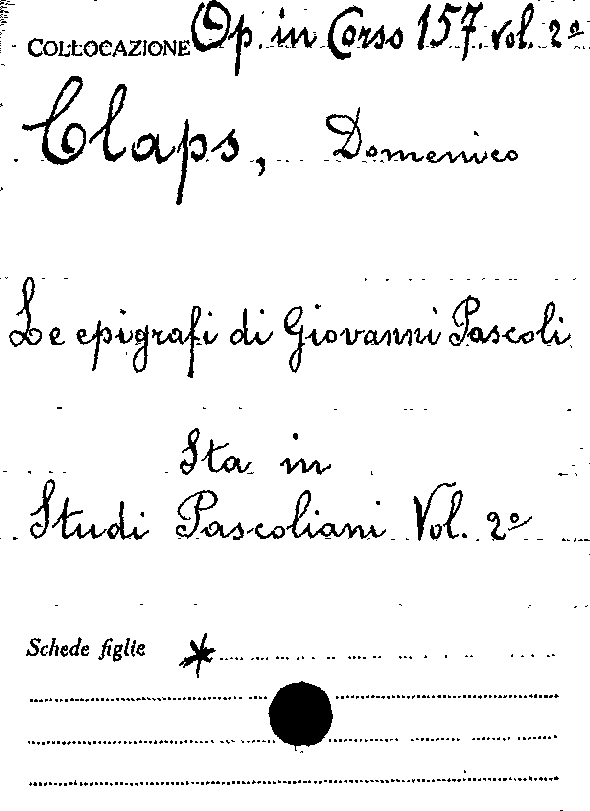 COLLOCAZIONE Op. in Corso 157. Vol. 2º
Claps, Domenico
Le epigrafi di Giovanni Pascoli
Sta in
Studi Pascoliani Vol. 2º
Schede figlie *